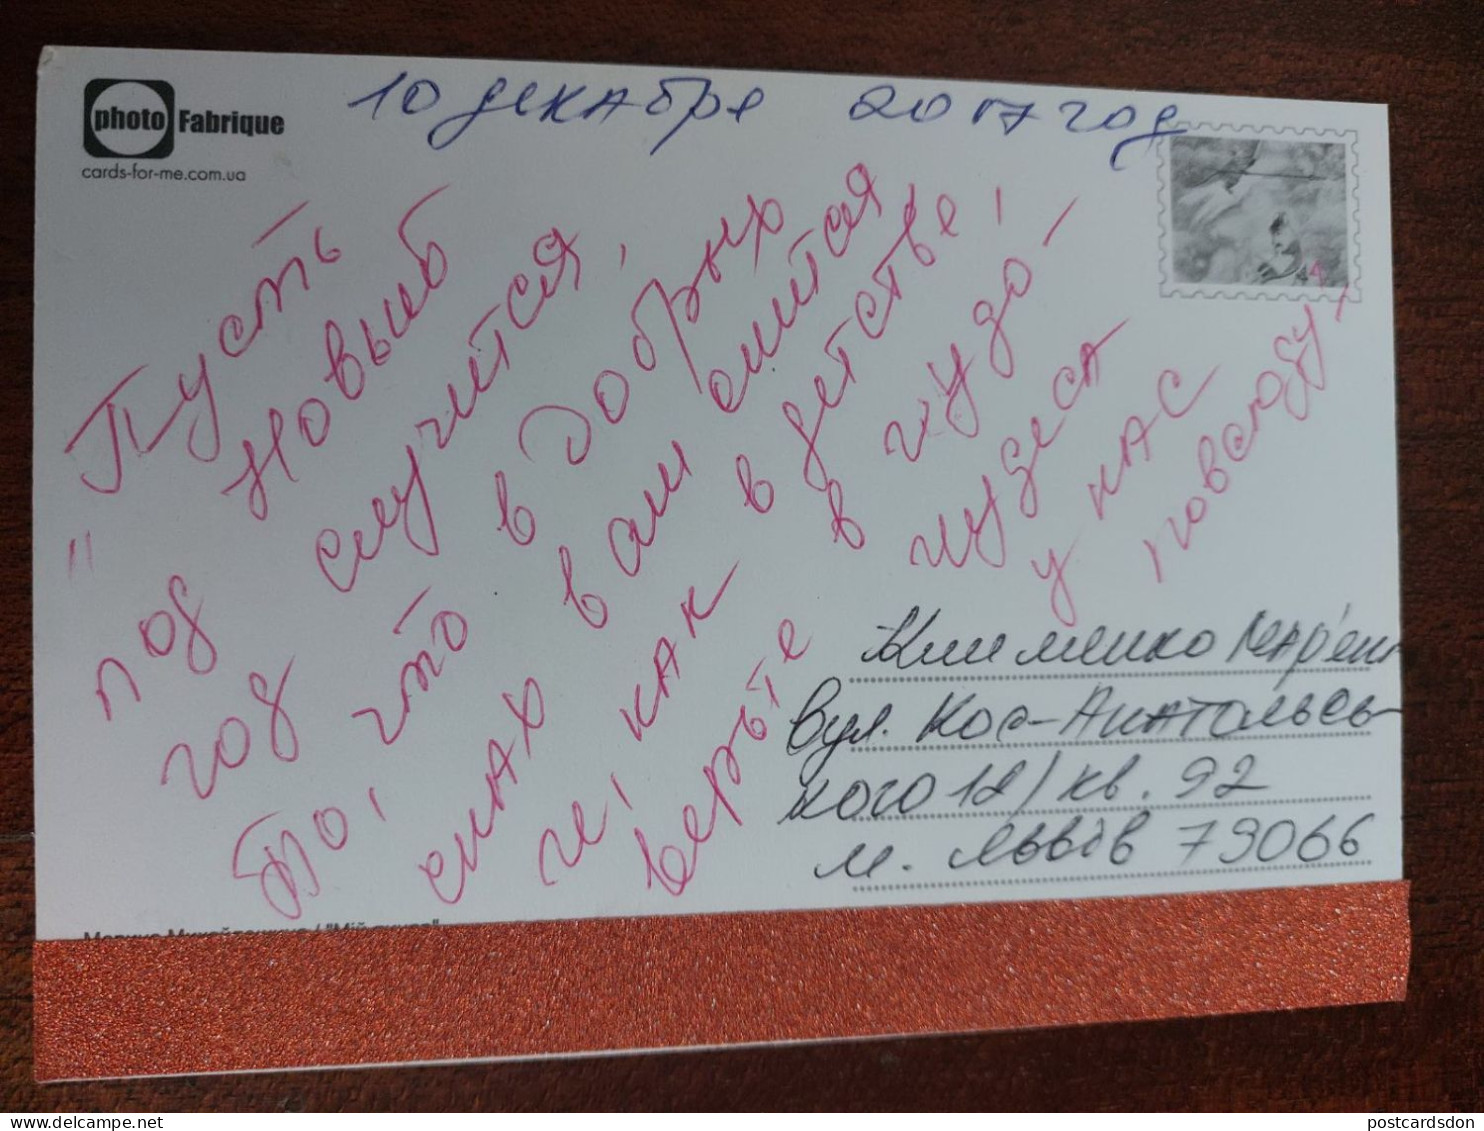 photo Fabrique
cards-for-me.com.ua
10 декабря 2017 год
" Пусть
под Новый
год случится,
то, что в добрых
снах вам снится
и, как в детстве,
верьте в чудо -
чудеса
у нас
повсюду!
вул. Кос-Анатольсь-
кого 12/ кв. 92
м. Львів 79066
postcardsdon
delcampe.net